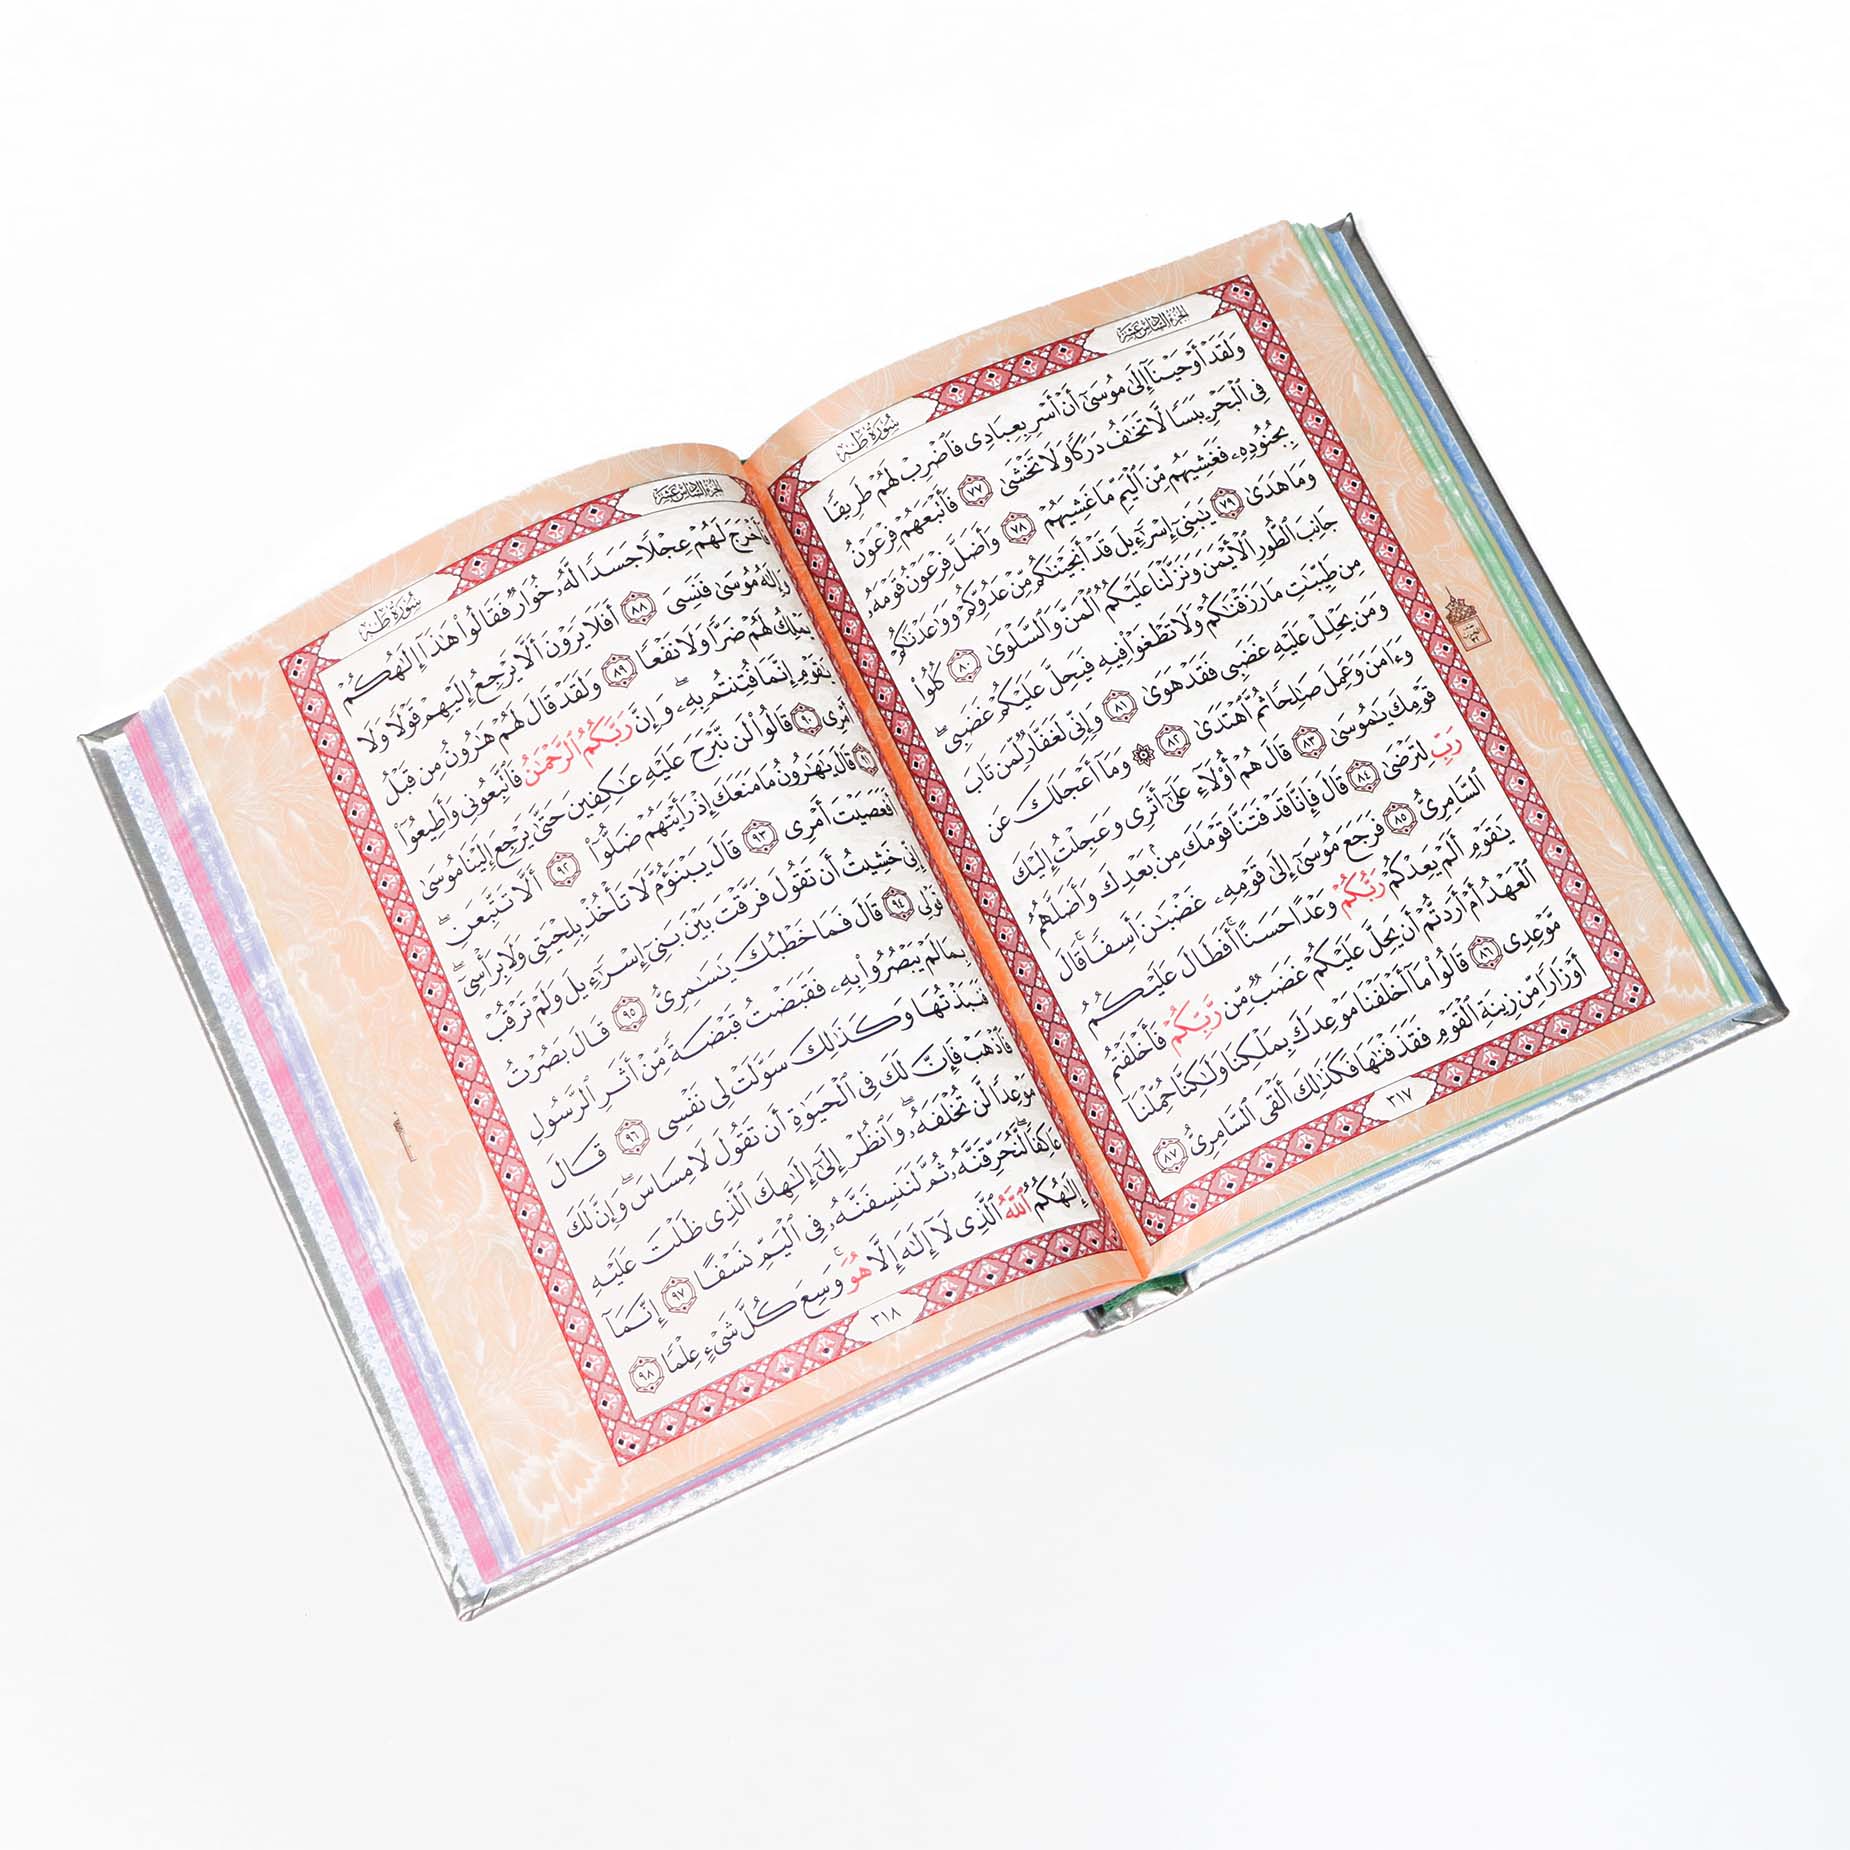 الجزء السادس عشر
سورة طه
وَلَقَدْ أَوْحَيْنَا إِلَىٰ مُوسَىٰ أَنْ أَسْرِ بِعِبَادِى فَاضْرِبْ لَهُمْ طَرِيقًا
فِى الْبَحْرِ يَبَسًا لَّا تَخَـٰفُ دَرَكًا وَلَا تَخْشَىٰ ٧٧ فَأَتْبَعَهُمْ فِرْعَوْنُ
بِجُنُودِهِۦ فَغَشِيَهُم مِّنَ الْيَمِّ مَا غَشِيَهُمْ ٧٨ وَأَضَلَّ فِرْعَوْنُ قَوْمَهُۥ
وَمَا هَدَىٰ ٧٩ يَـٰبَنِىٓ إِسْرَٰٓءِيلَ قَدْ أَنجَيْنَـٰكُم مِّنْ عَدُوِّكُمْ وَوَٰعَدْنَـٰكُمْ
جَانِبَ الطُّورِ الْأَيْمَنَ وَنَزَّلْنَا عَلَيْكُمُ الْمَنَّ وَالسَّلْوَىٰ ٨٠ كُلُوا۟
مِن طَيِّبَـٰتِ مَا رَزَقْنَـٰكُمْ وَلَا تَطْغَوْا۟ فِيهِ فَيَحِلَّ عَلَيْكُمْ غَضَبِى ۖ
وَمَن يَحْلِلْ عَلَيْهِ غَضَبِى فَقَدْ هَوَىٰ ٨١ وَإِنِّى لَغَفَّارٌ لِّمَن تَابَ
وَءَامَنَ وَعَمِلَ صَـٰلِحًا ثُمَّ اهْتَدَىٰ ٨٢ ۞ وَمَآ أَعْجَلَكَ عَن
قَوْمِكَ يَـٰمُوسَىٰ ٨٣ قَالَ هُمْ أُو۟لَآءِ عَلَىٰٓ أَثَرِى وَعَجِلْتُ إِلَيْكَ
رَبِّ لِتَرْضَىٰ ٨٤ قَالَ فَإِنَّا قَدْ فَتَنَّا قَوْمَكَ مِنۢ بَعْدِكَ وَأَضَلَّهُمُ
السَّامِرِىُّ ٨٥ فَرَجَعَ مُوسَىٰٓ إِلَىٰ قَوْمِهِۦ غَضْبَـٰنَ أَسِفًا ۚ قَالَ
يَـٰقَوْمِ أَلَمْ يَعِدْكُمْ رَبُّكُمْ وَعْدًا حَسَنًا ۚ أَفَطَالَ عَلَيْكُمُ
الْعَهْدُ أَمْ أَرَدتُّمْ أَن يَحِلَّ عَلَيْكُمْ غَضَبٌ مِّن رَّبِّكُمْ فَأَخْلَفْتُم
مَّوْعِدِى ٨٦ قَالُوا۟ مَآ أَخْلَفْنَا مَوْعِدَكَ بِمَلْكِنَا وَلَـٰكِنَّا حُمِّلْنَآ
أَوْزَارًا مِّن زِينَةِ الْقَوْمِ فَقَذَفْنَـٰهَا فَكَذَٰلِكَ أَلْقَى السَّامِرِىُّ ٨٧
٣١٧
الجزء السادس عشر
سورة طه
فَأَخْرَجَ لَهُمْ عِجْلًا جَسَدًا لَّهُۥ خُوَارٌ فَقَالُوا۟ هَـٰذَآ إِلَـٰهُكُمْ
وَإِلَـٰهُ مُوسَىٰ فَنَسِىَ ٨٨ أَفَلَا يَرَوْنَ أَلَّا يَرْجِعُ إِلَيْهِمْ قَوْلًا وَلَا
يَمْلِكُ لَهُمْ ضَرًّا وَلَا نَفْعًا ٨٩ وَلَقَدْ قَالَ لَهُمْ هَـٰرُونُ مِن قَبْلُ
يَـٰقَوْمِ إِنَّمَا فُتِنتُم بِهِۦ ۖ وَإِنَّ رَبَّكُمُ الرَّحْمَـٰنُ فَاتَّبِعُونِى وَأَطِيعُوٓا۟
أَمْرِى ٩٠ قَالُوا۟ لَن نَّبْرَحَ عَلَيْهِ عَـٰكِفِينَ حَتَّىٰ يَرْجِعَ إِلَيْنَا مُوسَىٰ
٩١ قَالَ يَـٰهَـٰرُونُ مَا مَنَعَكَ إِذْ رَأَيْتَهُمْ ضَلُّوٓا۟ ٩٢ أَلَّا تَتَّبِعَنِ ۖ
أَفَعَصَيْتَ أَمْرِى ٩٣ قَالَ يَبْنَؤُمَّ لَا تَأْخُذْ بِلِحْيَتِى وَلَا بِرَأْسِىٓ ۖ
إِنِّى خَشِيتُ أَن تَقُولَ فَرَّقْتَ بَيْنَ بَنِىٓ إِسْرَٰٓءِيلَ وَلَمْ تَرْقُبْ
قَوْلِى ٩٤ قَالَ فَمَا خَطْبُكَ يَـٰسَـٰمِرِىُّ ٩٥ قَالَ بَصُرْتُ
بِمَا لَمْ يَبْصُرُوا۟ بِهِۦ فَقَبَضْتُ قَبْضَةً مِّنْ أَثَرِ الرَّسُولِ
فَنَبَذْتُهَا وَكَذَٰلِكَ سَوَّلَتْ لِى نَفْسِى ٩٦ قَالَ
فَاذْهَبْ فَإِنَّ لَكَ فِى الْحَيَوٰةِ أَن تَقُولَ لَا مِسَاسَ ۖ وَإِنَّ لَكَ
مَوْعِدًا لَّن تُخْلَفَهُۥ ۖ وَانظُرْ إِلَىٰٓ إِلَـٰهِكَ الَّذِى ظَلْتَ عَلَيْهِ
عَاكِفًا ۖ لَّنُحَرِّقَنَّهُۥ ثُمَّ لَنَنسِفَنَّهُۥ فِى الْيَمِّ نَسْفًا ٩٧ إِنَّمَآ
إِلَـٰهُكُمُ اللَّهُ الَّذِى لَآ إِلَـٰهَ إِلَّا هُوَ ۚ وَسِعَ كُلَّ شَىْءٍ عِلْمًا ٩٨
٣١٨